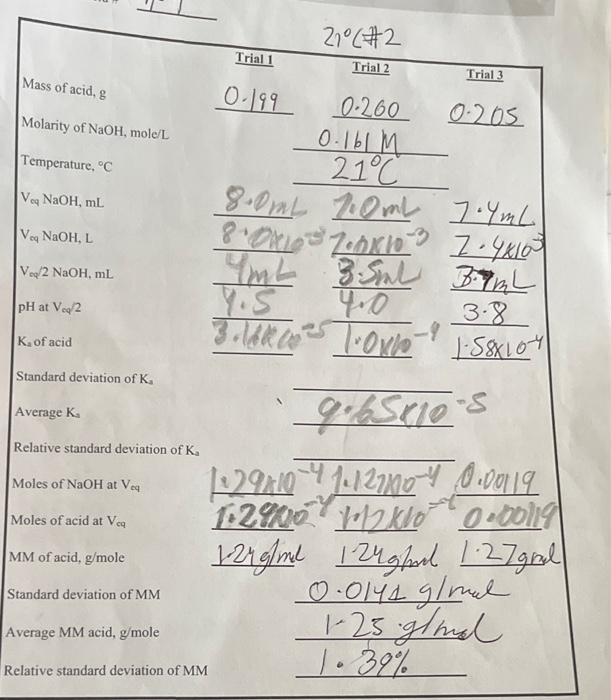 21°C #2
Trial 1 Trial 2 Trial 3
Mass of acid, g 0.199 0.200 0.205
Molarity of NaOH, mole/L 0.161 M
Temperature, °C 21°C
Veq NaOH, mL 8.0mL 7.0mL 7.4mL
Veq NaOH, L 8.0x10-3 7.0x10-3 7.4x103
Veq/2 NaOH, mL 4mL 3.5mL 3.7mL
pH at Veq/2 4.5 4.0 3.8
Ka of acid 3.16x10-5 1.0x10-4 1.58x10-4
Standard deviation of Ka
Average Ka 9.65x10-5
Relative standard deviation of Ka
Moles of NaOH at Veq 1.29x10-4 1.127x10-4 0.00119
Moles of acid at Veq 1.29x10-4 1.12x10 0.00119
MM of acid, g/mole 1.24g/mol 1.24g/mol 1.27gmol
Standard deviation of MM 0.0141 g/mol
Average MM acid, g/mole 1.25 g/mol
Relative standard deviation of MM 1.39%